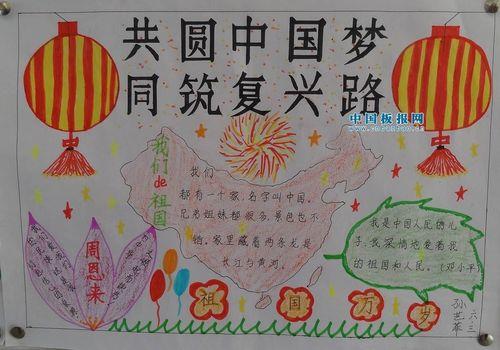 共圆中国梦
同筑复兴路
中国板报网
www.cnbanbao.cn
我们de祖国
我们
都有一个家,名字叫中国。
兄弟姐妹都服务,景色也不
错。家里藏着两条龙是
长江与黄河。
周恩来
我是中国人民的儿
子,我深情地爱着我
的祖国和人民。(邓小平)
祖国万岁
六三
孙艺菲